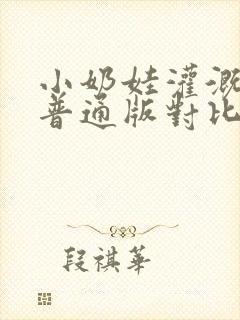 小奶娃灌溉
普通版對比
段祺華